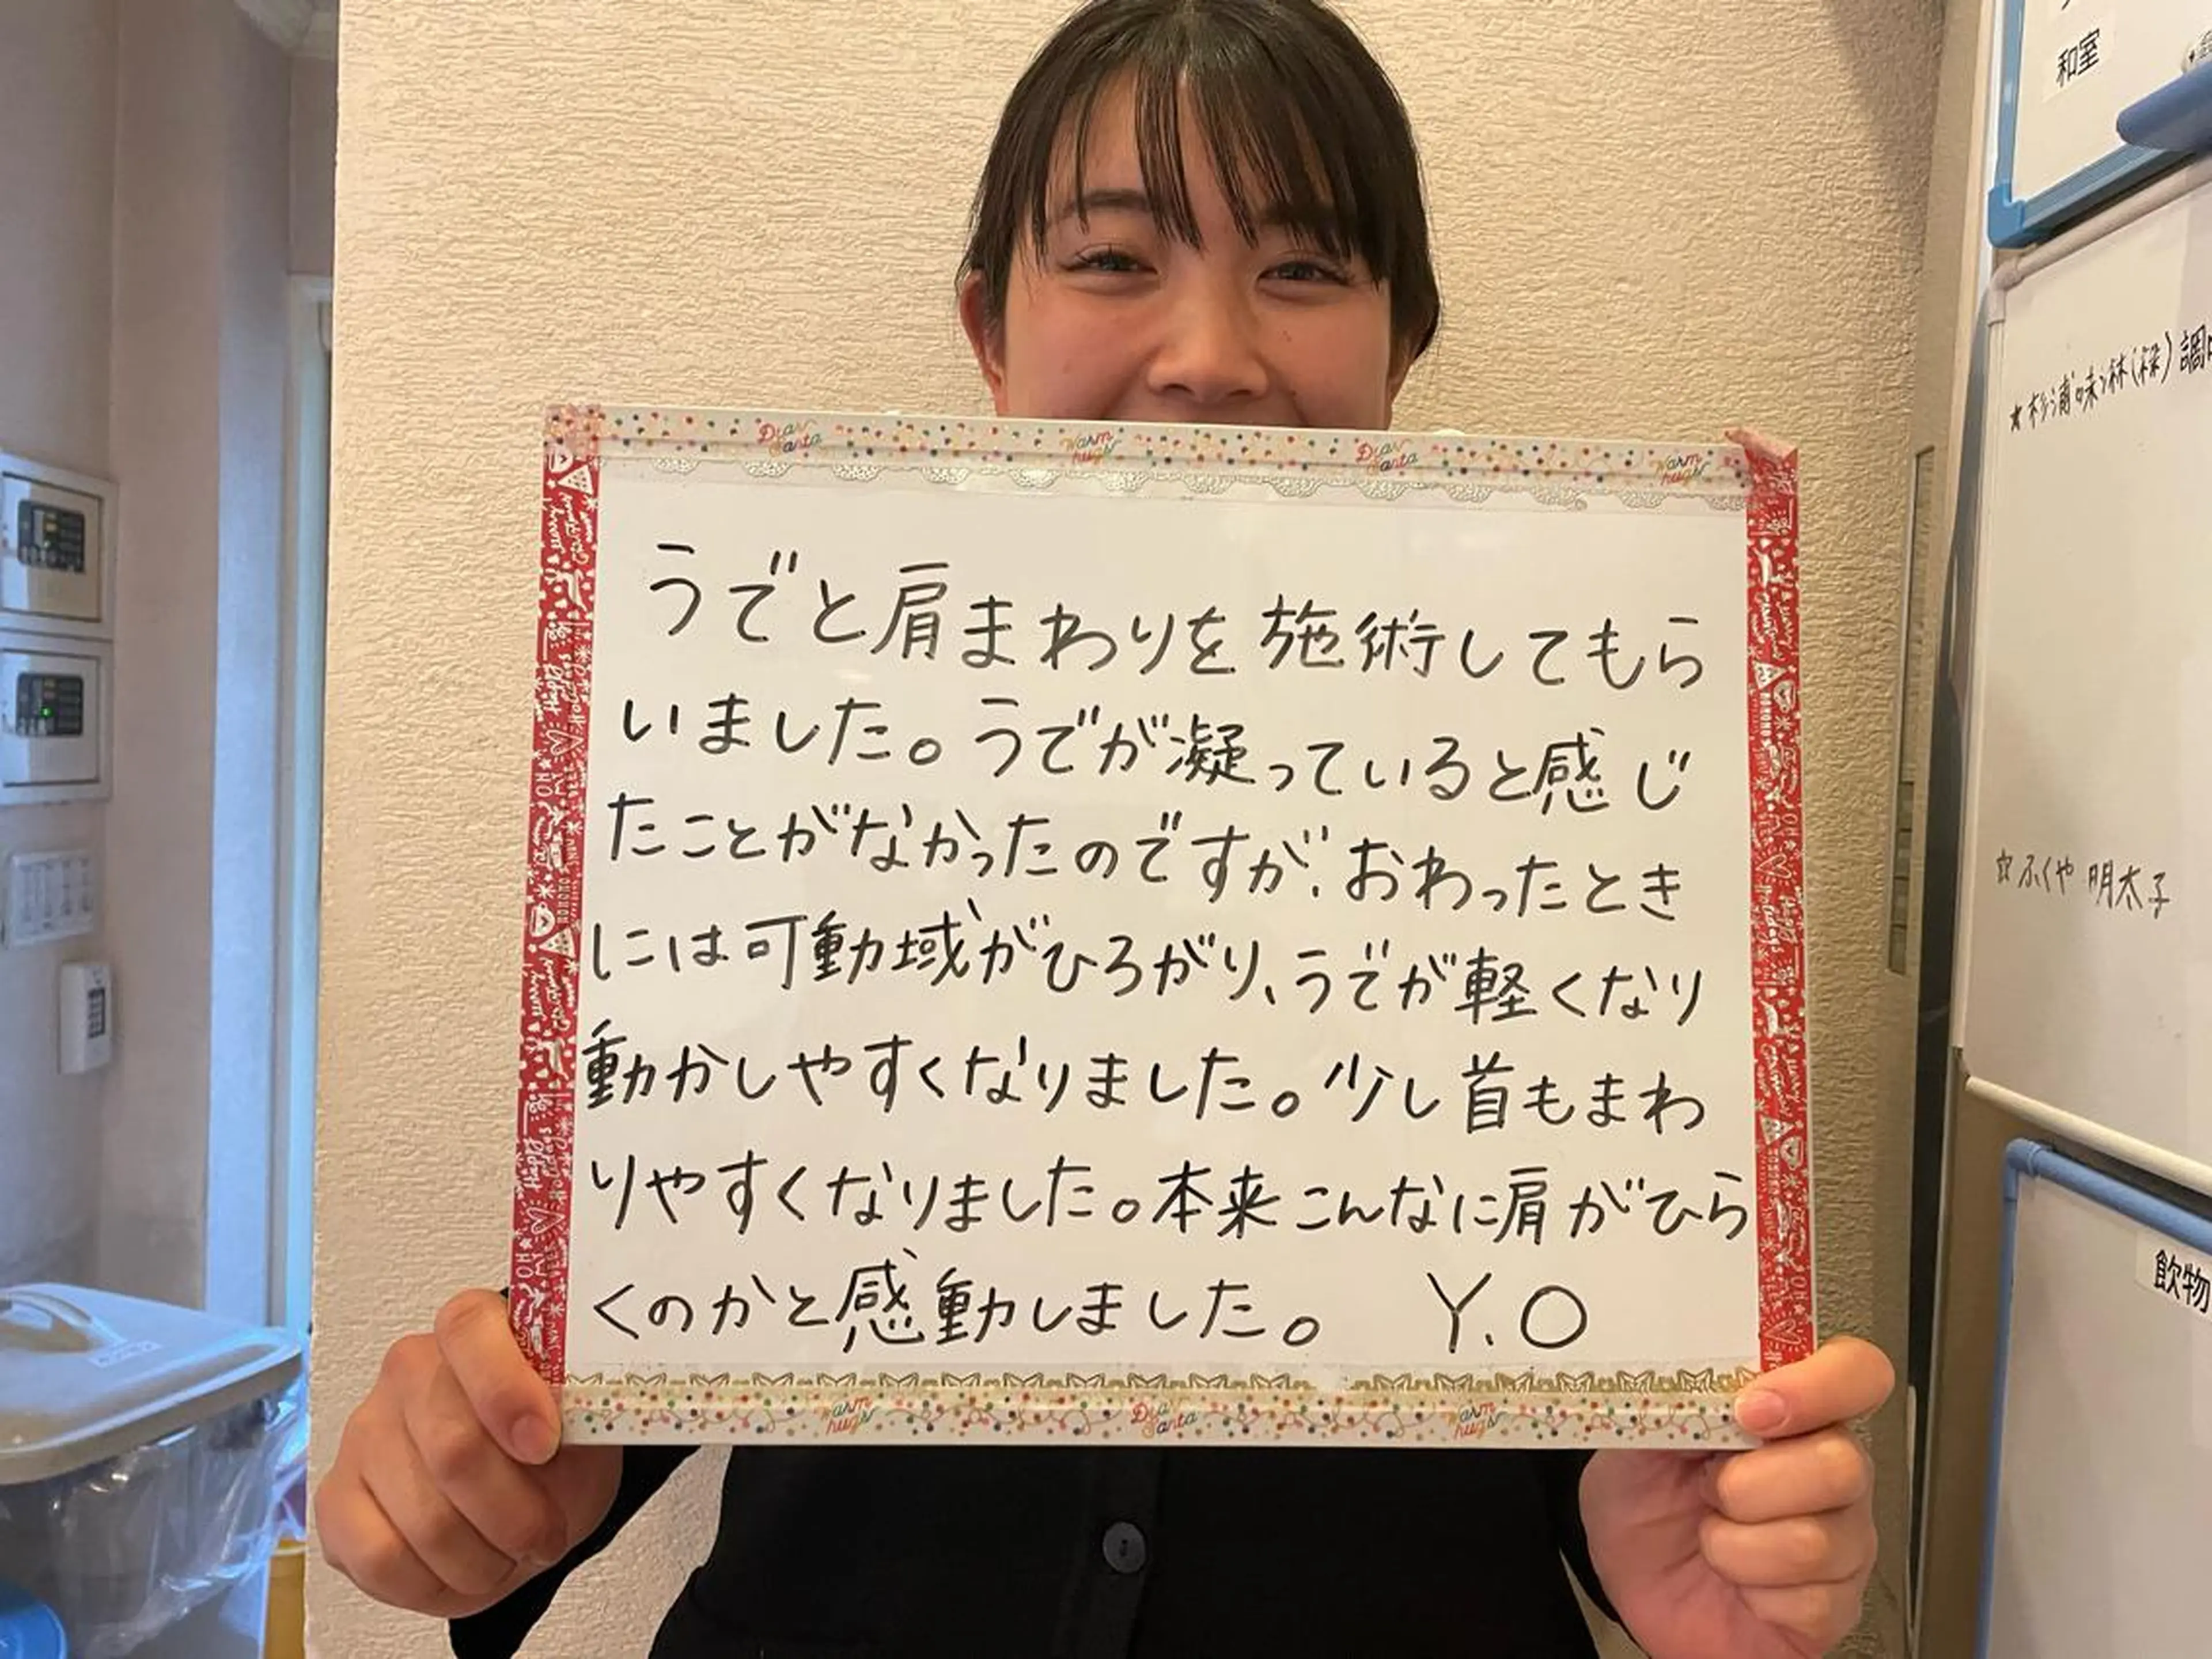 うでと肩まわりを施術してもら
いました。うでが凝っていると感じ
たことがなかったのですが、おわったとき
には可動域がひろがり、うでが軽くなり
動かしやすくなりました。少し首もまわ
りやすくなりました。本来こんなに肩がひら
くのかと感動しました。 Y.O
Dear Santa
Warm hugs
Dear Santa
Warm hugs
Warm hugs
Dear Santa
Warm hugs
和室
☆ふくや 明太子
飲物